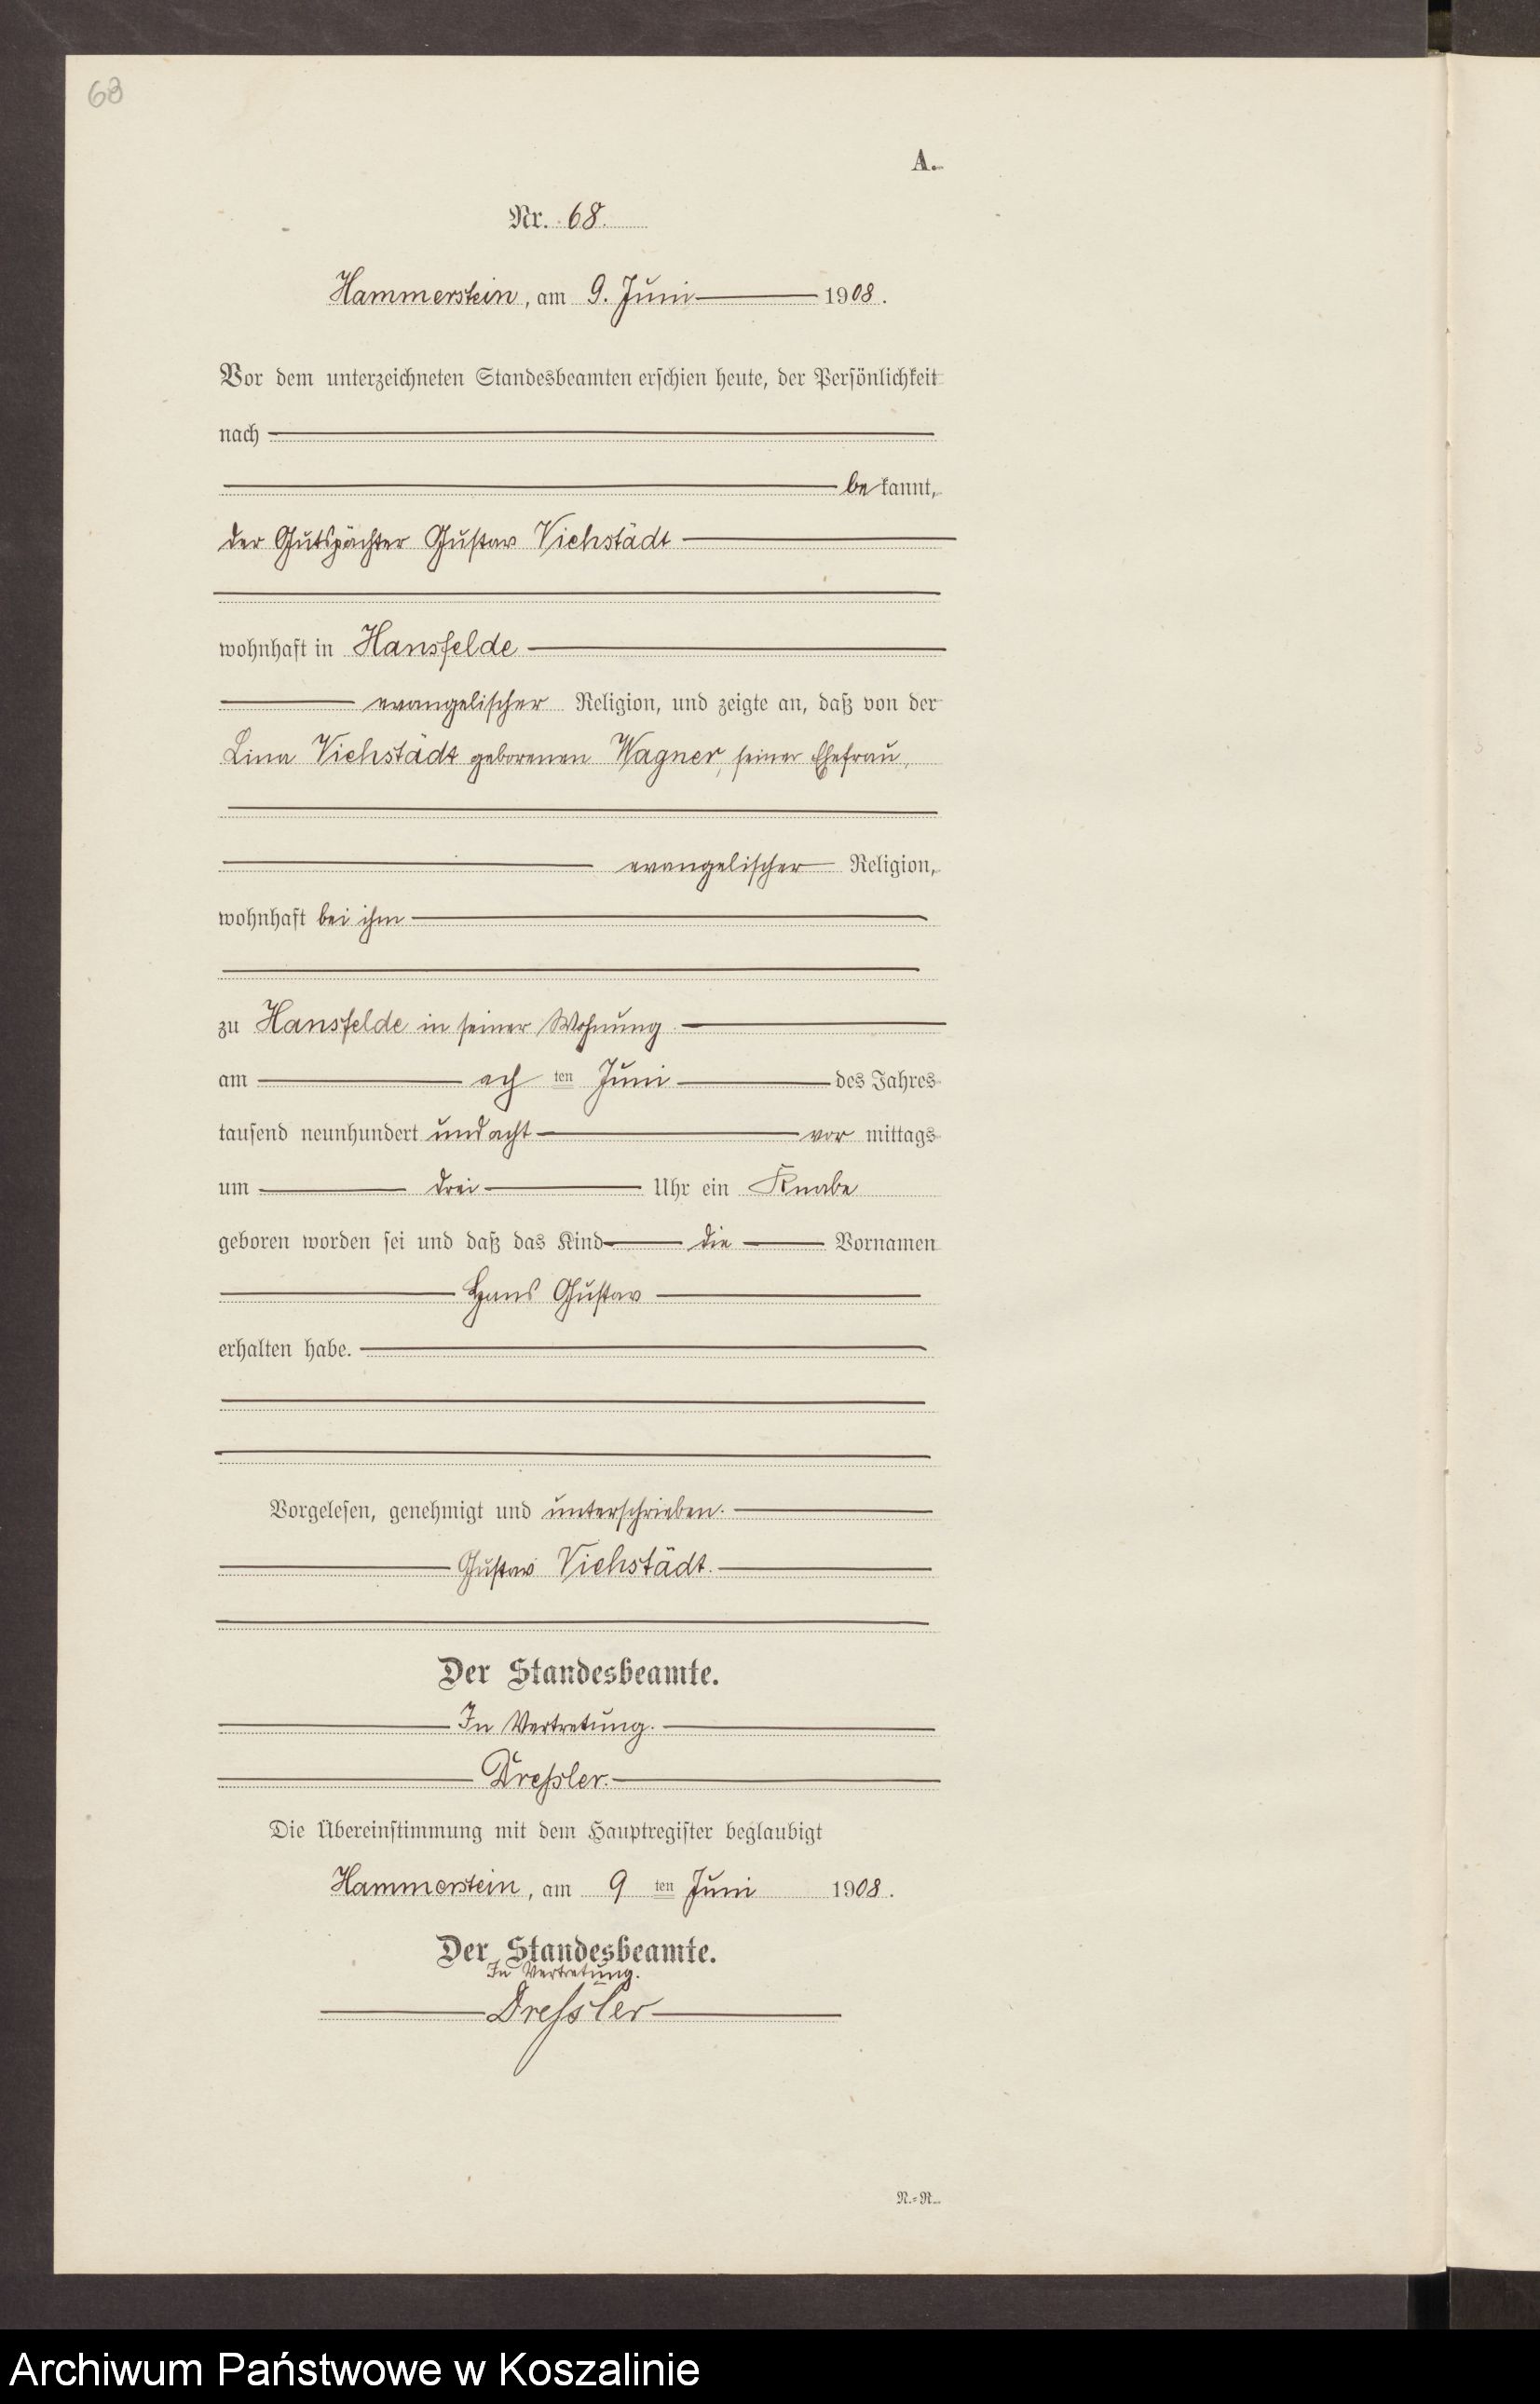 68
A.
Nr. 68.
Hammerstein, am 9. Juni 1908.
Vor dem unterzeichneten Standesbeamten erschien heute, der Persönlichkeit
nach
bekannt,
der Gutspächter Gustav Viehstädt
wohnhaft in Hansfelde
evangelischer Religion, und zeigte an, daß von der
Lina Viehstädt geborenen Wagner, seiner Ehefrau,
evangelischer Religion,
wohnhaft bei ihm
zu Hansfelde in seiner Wohnung
am ach ten Juni des Jahres
tausend neunhundert und acht vor mittags
um drei Uhr ein Knabe
geboren worden sei und daß das Kind die Vornamen
Hans Gustav
erhalten habe.
Vorgelesen, genehmigt und unterschrieben.
Gustav Viehstädt.
Der Standesbeamte.
In Vertretung.
Dreßler.
Die Übereinstimmung mit dem Hauptregister beglaubigt
Hammerstein, am 9 ten Juni 1908.
Der Standesbeamte.
In Vertretung.
Dressler
N.-R.
Archiwum Państwowe w Koszalinie